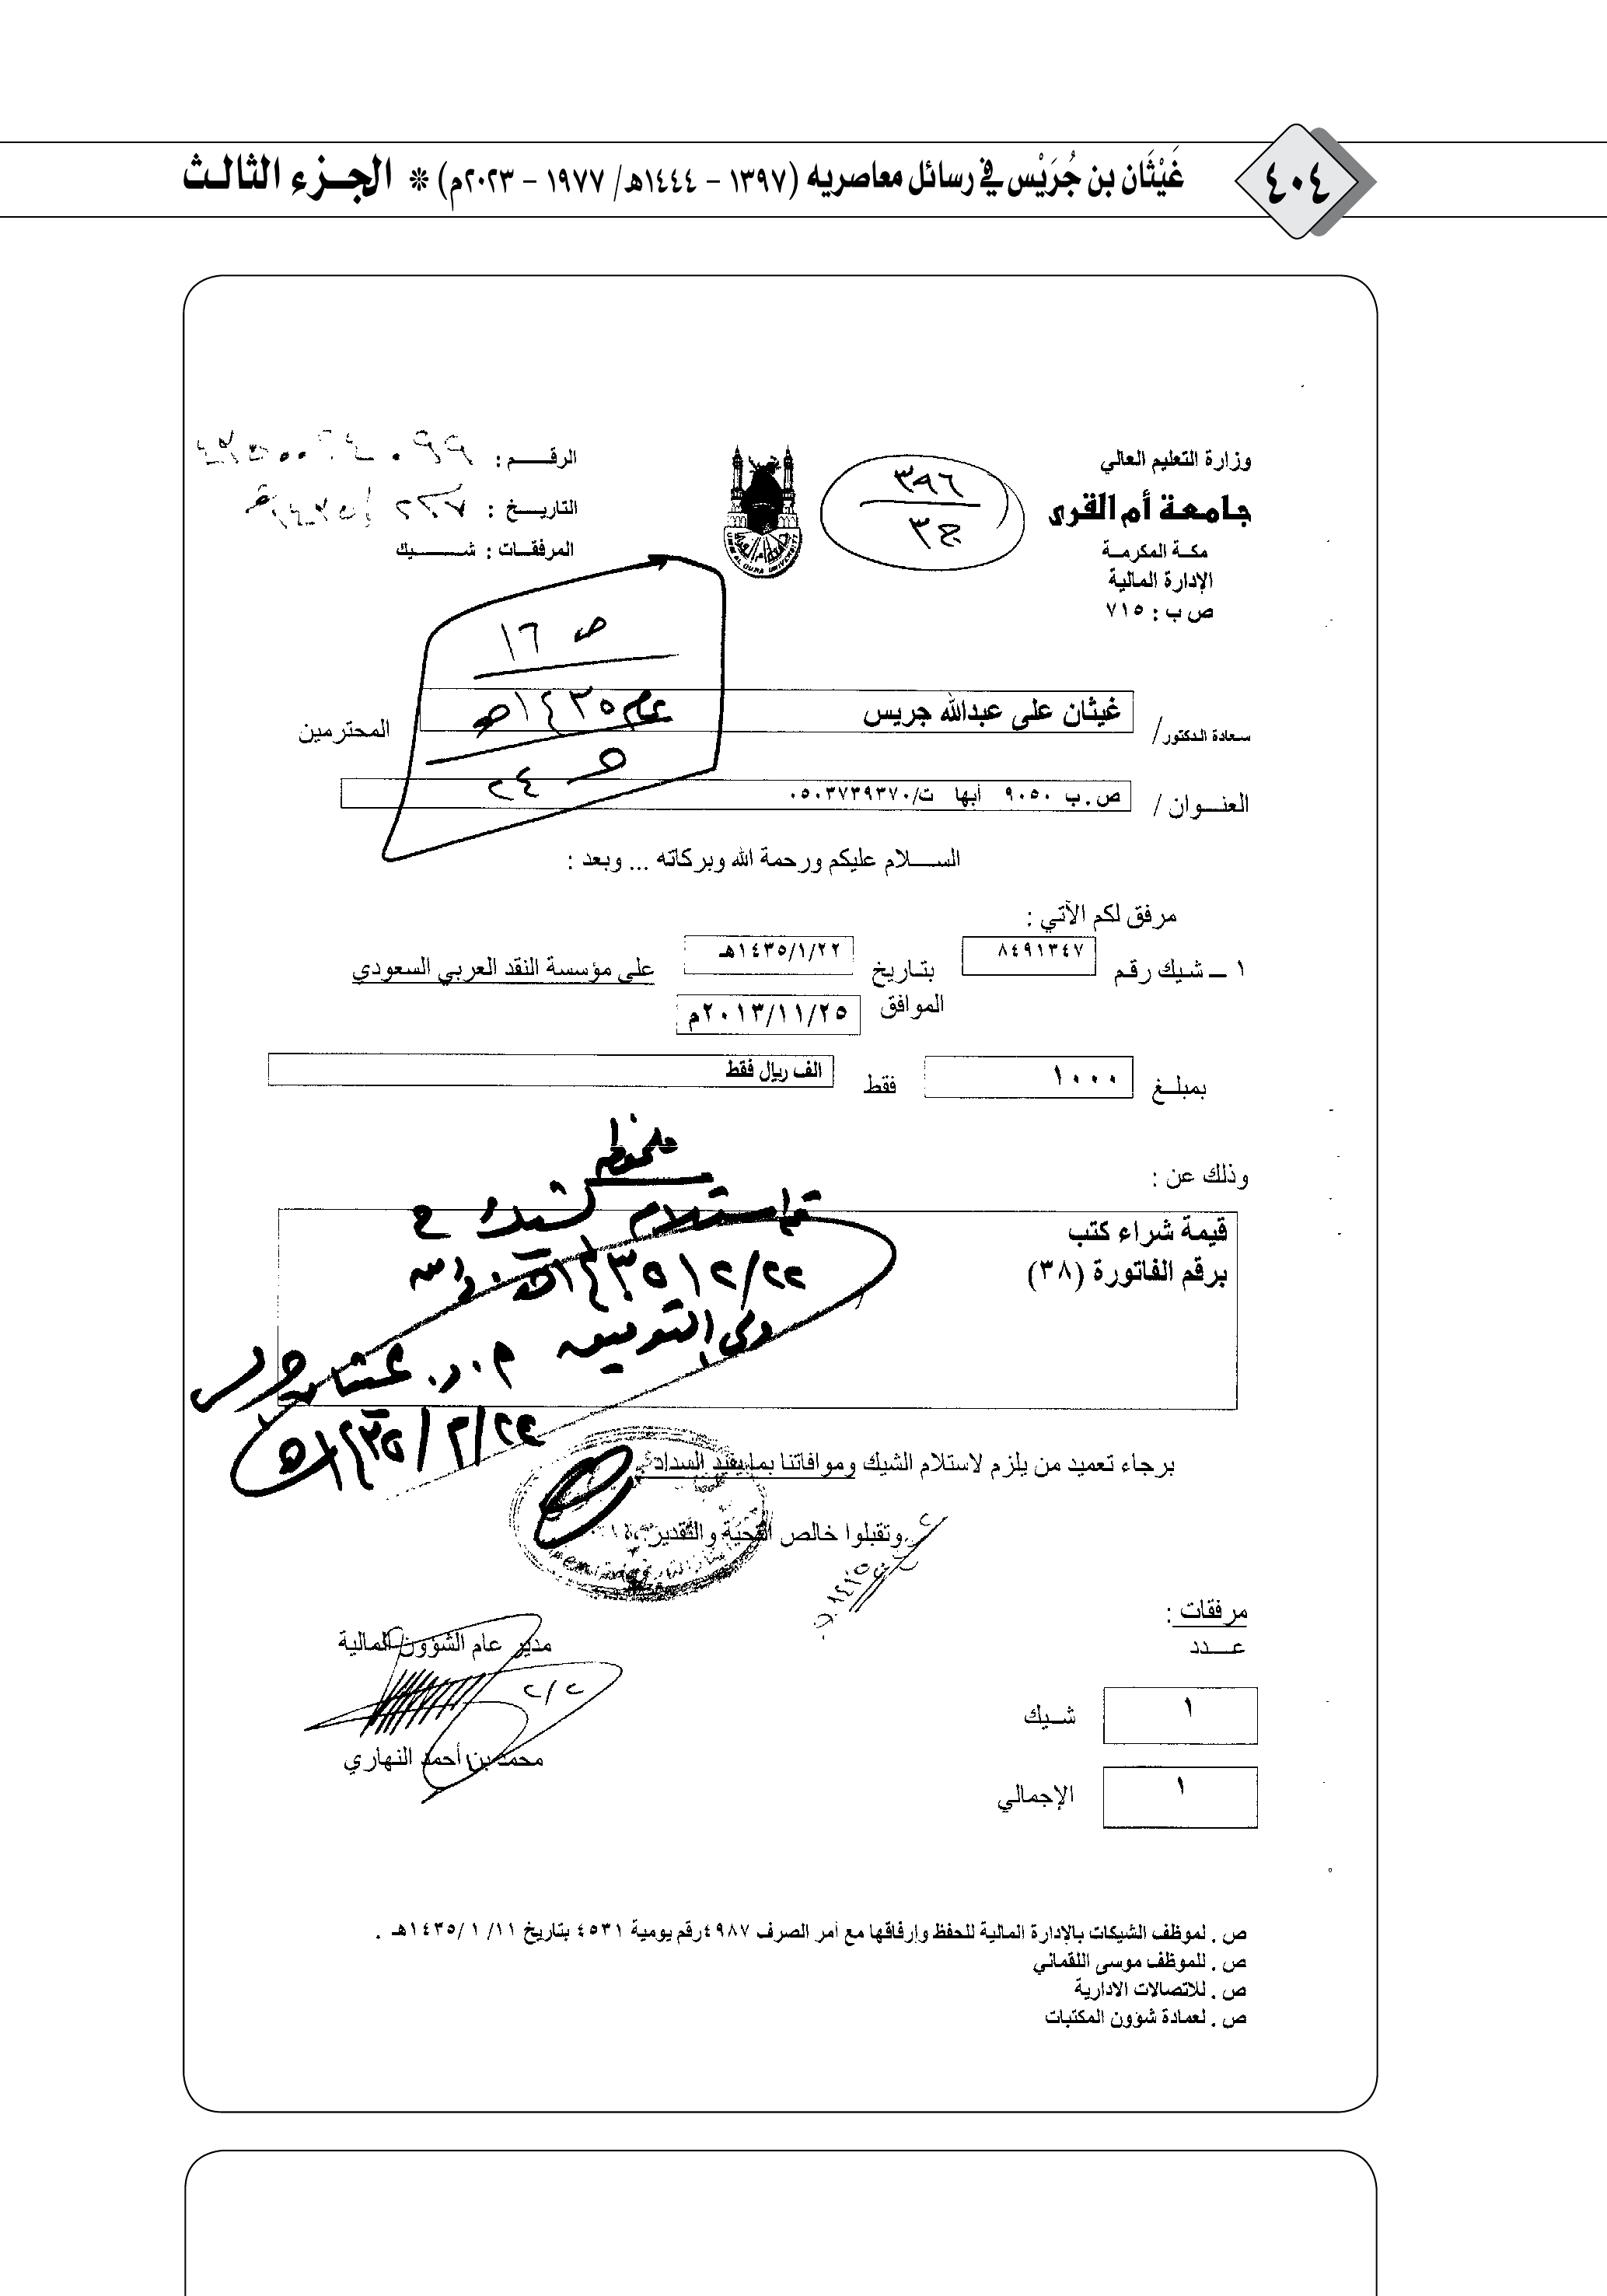 ٤٠٤
غَيْثَان بن جُرَيْس في رسائل معاصريه (١٣٩٧ - ١٤٤٤هـ/ ١٩٧٧ - ٢٠٢٣م) * الجزء الثالث
وزارة التعليم العالي
جامعة أم القرى
مكة المكرمة
الإدارة المالية
ص ب : ٧١٥
٣٩٦
ج٣
UMM AL QURA UNIVERSITY
الرقم :
التاريخ :
المرفقات : شيك
ص ١٦
عام ١٤٣٥هـ
سعادة الدكتور/ غيثان على عبدالله جريس المحترمين
العنوان / ص.ب ٩٠٥٠ أبها ت/٠٥٠٣٧٣٩٣٧٠
السلام عليكم ورحمة الله وبركاته ... وبعد :
مرفق لكم الآتي :
١ – شيك رقم ٨٤٩١٣٤٧ بتاريخ ١٤٣٥/١/٢٢هـ على مؤسسة النقد العربي السعودي
الموافق ٢٠١٣/١١/٢٥م
بمبلغ ١٠٠٠ فقط الف ريال فقط
وذلك عن :
قيمة شراء كتب
برقم الفاتورة (٣٨)
ملحوظة
تم استلام الشيك
٢٢/٢/١٤٣٥هـ
التوفيق م.د. غيثان جريس
برجاء تعميد من يلزم لاستلام الشيك وموافاتنا بما يفيد السداد
وتقبلوا خالص التحية والتقدير
مدير عام الشؤون المالية
٢/٢
محمد بن أحمد النهاري
مرفقات :
عدد
١ شيك
١ الإجمالي
ص . لموظف الشيكات بالإدارة المالية للحفظ وإرفاقها مع أمر الصرف ٤٩٨٧رقم يومية ٤٥٣١ بتاريخ ١١/ ١ /١٤٣٥هـ .
ص . للموظف موسى اللقماني
ص . للاتصالات الادارية
ص . لعمادة شؤون المكتبات